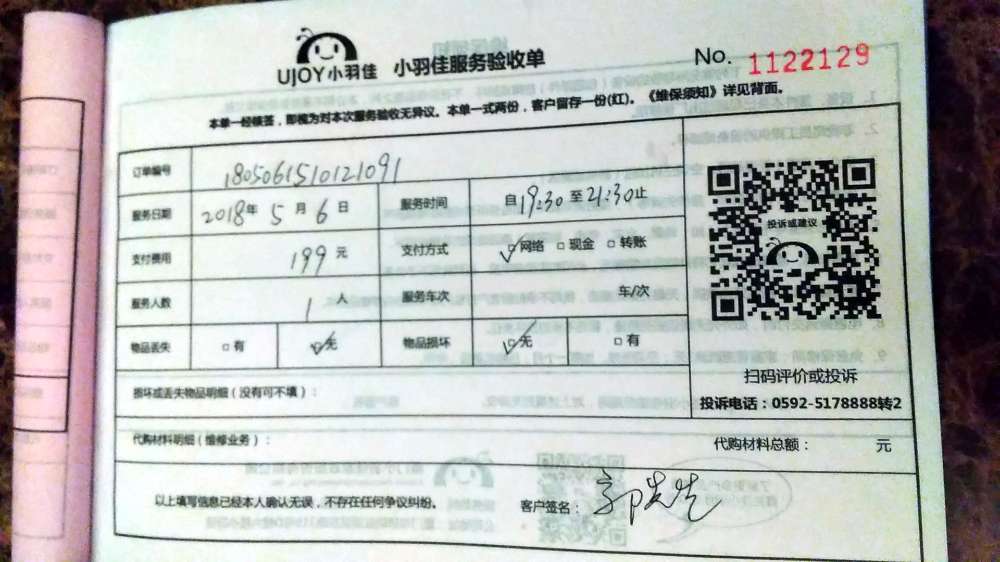 UJOY小羽佳 小羽佳服务验收单 No. 1122129
本单一经核签，即视为对本次服务验收无异议。本单一式两份，客户留存一份(红)。《维保须知》详见背面。
订单编号 1805061510121091
服务日期 2018年5月6日 服务时间 自19:30至21:30止
支付费用 199元 支付方式 ☑网络 □现金 □转账
服务人数 1人 服务车次 车/次
物品丢失 □有 ☑无 物品损坏 ☑无 □有
损坏或丢失物品明细（没有可不填）：
投诉或建议
扫码评价或投诉
投诉电话：0592-5178888转2
代购材料明细（维修业务）： 代购材料总额： 元
以上填写信息已经本人确认无误，不存在任何争议纠纷。 客户签名：郭先生